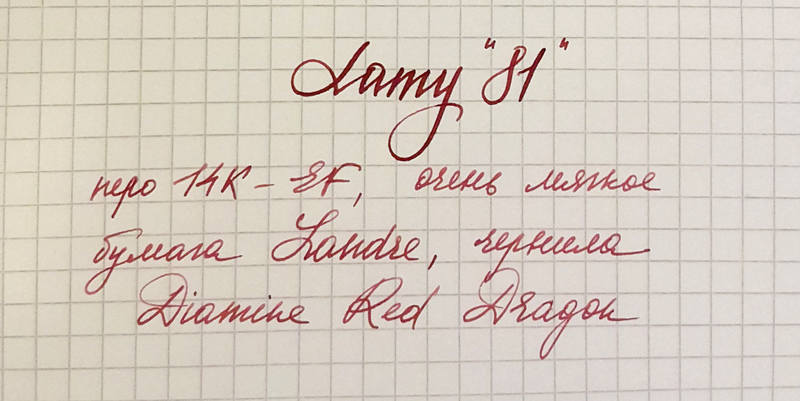 Lamy "81"
перо 14К – EF, очень мягкое
бумага Landre, чернила
Diamine Red Dragon